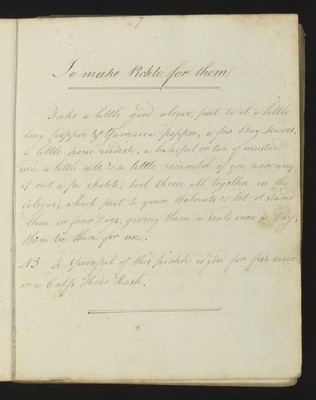 7
To make Pickle for them
Take a little good alegar, put to it a little
long pepper & Jamaica pepper, a few Bay leaves,
a little horse radish, a handful or two of mustard
seed, a little salt & a little rocambol if you have any,
if not a few shalots; boil them all together in the
Alegar, which put to your Walnuts & let it stand
three or four Days, giving them a scald once a Day,
then tie them for use.
NB A spoonful of this pickle is good for fish sauce
or a Calfs Head Hash.